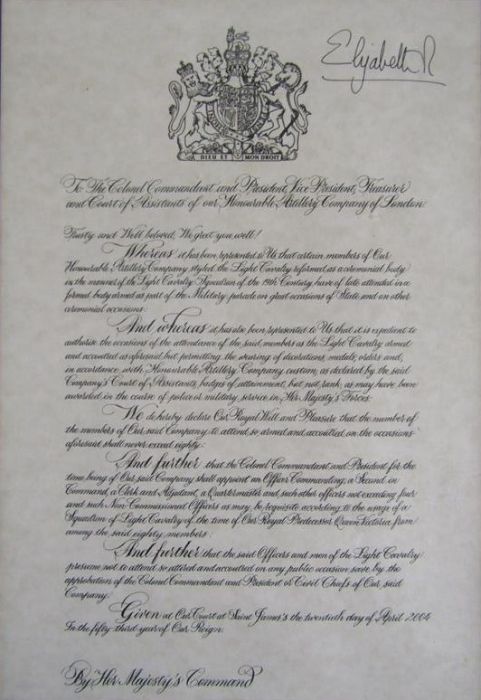 Elizabeth R
DIEU ET MON DROIT
To The Colonel Commandant and President, Vice President, Treasurer
and Court of Assistants of our Honourable Artillery Company of London
Trusty and Well beloved, We greet you well!
Whereas it has been represented to Us that certain members of Our
Honourable Artillery Company, styled the Light Cavalry reformed as a ceremonial body
in the manner of the Light Cavalry Squadron of the 19th Century have of late attended in a
formed body armed as part of the Military parade on great occasions of State and on other
ceremonial occasions:
And whereas it has also been represented to Us that it is expedient to
authorise the occasions of the attendance of the said members as the Light Cavalry armed
and accoutred as aforesaid but permitting the wearing of decorations, medals, orders and,
in accordance with Honourable Artillery Company custom, as declared by the said
Company's Court of Assistants, badges of attainment, but not rank, as may have been
awarded in the course of police or military service in Her Majesty's Forces:
We do hereby declare Our Royal Will and Pleasure that the number of
the members of Our said Company to attend so armed and accoutred on the occasions
aforesaid shall never exceed eighty:
And further that the Colonel Commandant and President for the
time being of Our said Company shall appoint an Officer Commanding, a Second in
Command, a Clerk and Adjutant, a Quartermaster and such other officers not exceeding four
and such Non Commissioned Officers as may be requisite according to the usage of a
Squadron of Light Cavalry of the time of Our Royal Predecessor Queen Victoria from
among the said eighty members:
And further that the said Officers and men of the Light Cavalry
presume not to attend so attired and accoutred on any public occasion save by the
approbation of the Colonel Commandant and President or Civil Chiefs of Our said
Company:
Given at Our Court at Saint James's the twentieth day of April 2004
In the fifty third year of Our Reign.
By Her Majesty's Command